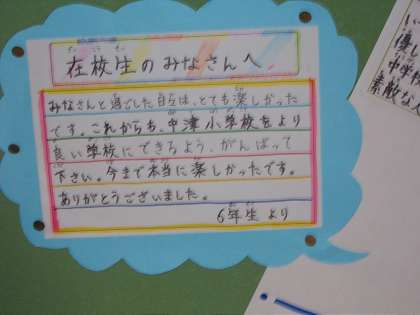 在校生のみなさんへ
みなさんと過ごした日々は、とても楽しかった
です。これからも、中津小学校をより
良い学校にできるよう、がんばって
下さい。今まで本当に楽しかったです。
ありがとうございました。
6年生より
優し
中学校
素敵な